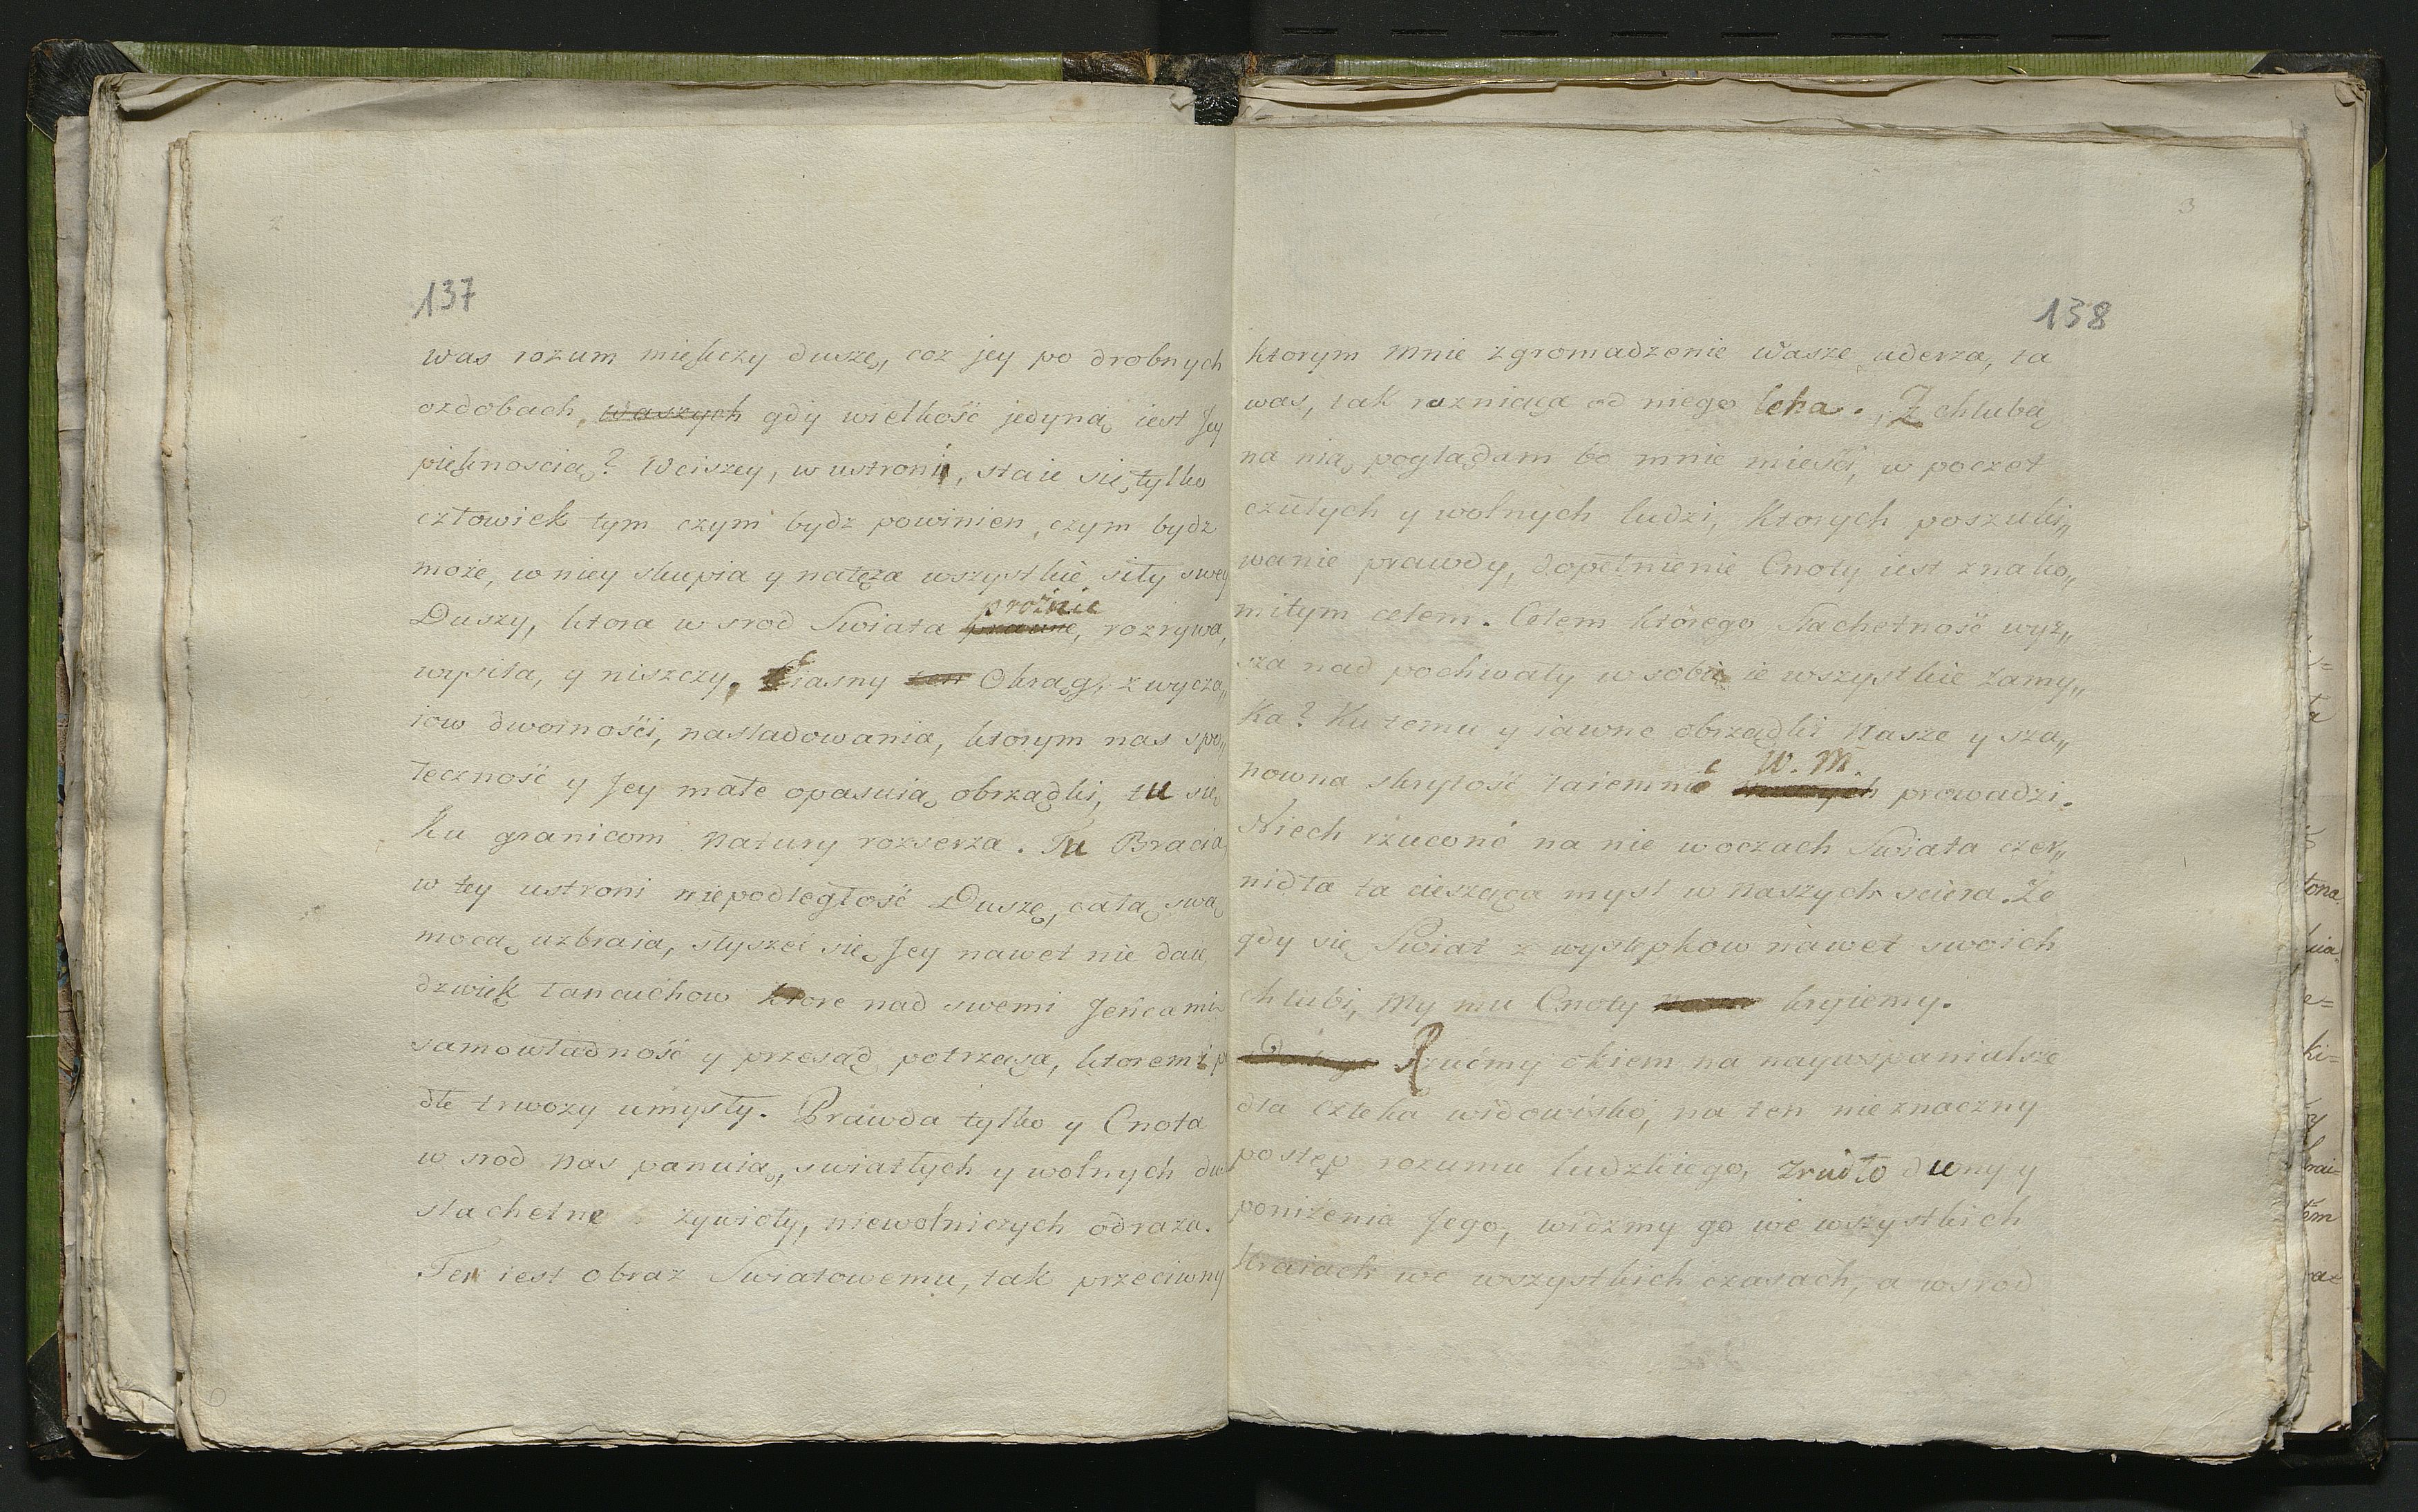 2
137
was rozum miękczy duszę, coz jey po drobnych
ozdobach, waszych gdy wielkość jedyną iest Jey
pięknoscią? W ciszey, w ustroni, staie się tylko
człowiek tym czym bydz powinien, czym bydz
może, w niey skupia y natęża wszystkie siły swey
Duszy, ktora w srod Swiata prożnie rozrywa,
wysila, y niszczy. Ciasny ten Okrąg, zwycza„
iow dwornośći, nasladowania, ktorym nas spo„
łeczność y Jey małe opasuią obrządki, tu się
ku granicom natury rozserza. Tu Bracia
w tey ustroni niepodległość Duszę, całą swą
mocą uzbraia, słyszeć się Jey nawet nie daie,
dzwięk łancuchow ktore nad swemi Jeńcami
samowładność y przesąd potrząsa, ktoremi po
dłe trwozy umysły. Prawda tylko y Cnota
w srod nas panuią, swiatłych y wolnych du
slachetne żywioły, niewolniczych odraża.
Ten iest obraz Swiatowemu, tak przeciwny
3
138
ktorym mnie zgromadzenie Wasze uderza, ta
was, tak rożniąca od niego lcha. Z chlubą
na nią poglądam bo mnie mieśći, w poczet
czułych y wolnych ludzi, ktorych poszuki„
wanie prawdy, dopełnienie Cnoty iest znako„
mitym celem. Celem którego Slachetność wyż„
sza nad pochwały w sobie ie wszystkie zamy„
ka? Ku temu y iawne obrządki Nasze y sza„
nowna skrytość taiemnic W. M. prowadzi.
Niech rzucone na nie w oczach Swiata czer„
nidła ta ciesząca mysl w Naszych sciera. Że
gdy się Swiat z występkow nawet swoich
chlubi, My mu Cnoty kryiemy.
Rzućmy okiem na naywspanialsze
dla człeka widowisko, na ten nieznaczny
postęp rozumu ludzkiego, zrudło dumy y
poniżenia Jego, widzmy go we wszystkich
kraiach we wszystkich czasach, a wsrod